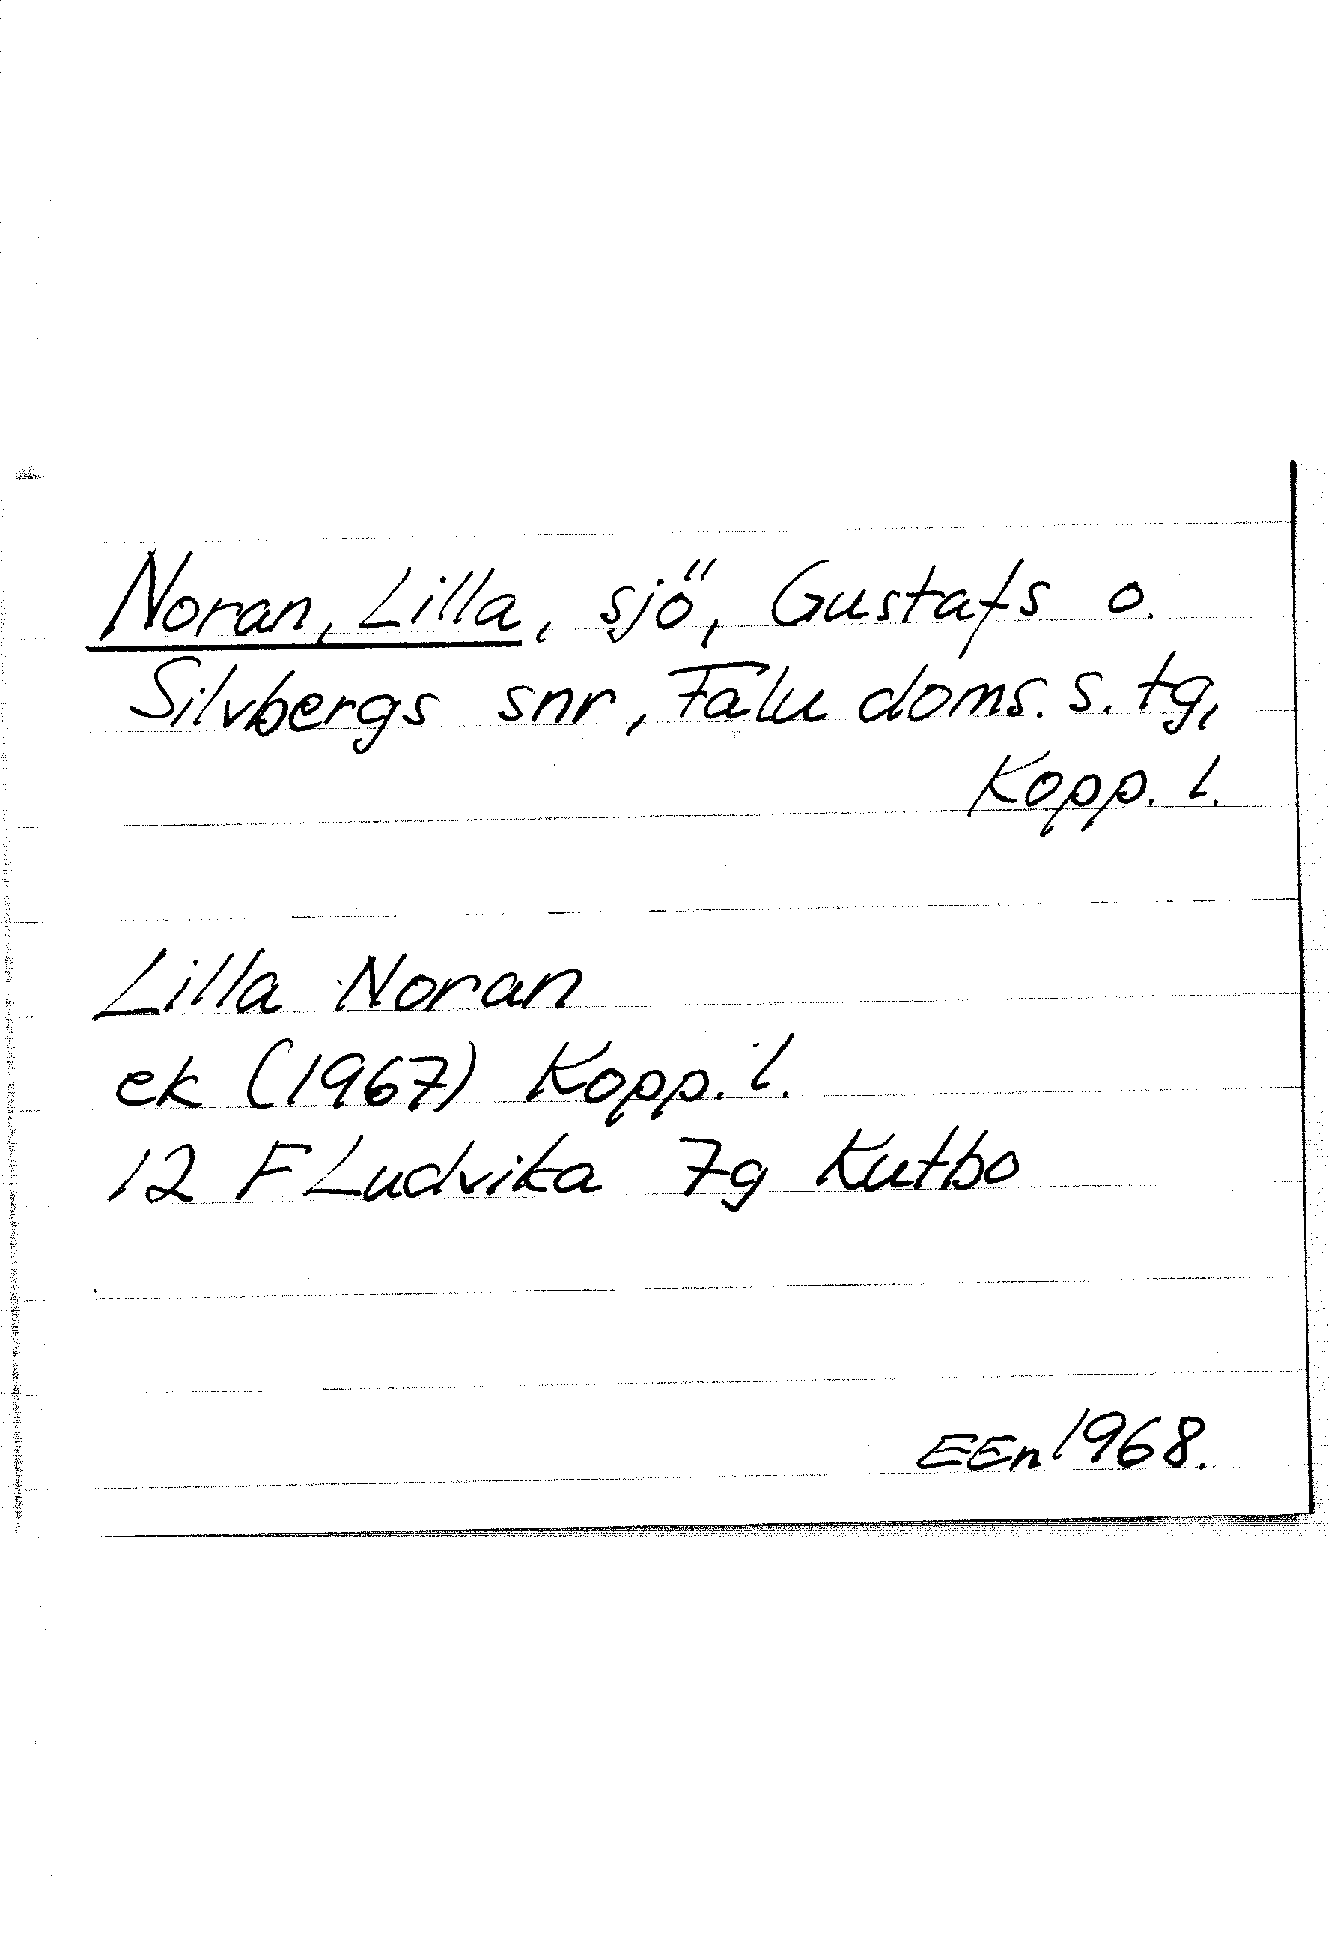 Noran, Lilla, sjö, Gustafs o.
Silvbergs snr, Falu doms. s. tg,
Kopp. l.
Lilla Noran
ek (1967) Kopp. l.
12 F Ludvika 7g Kutbo
EEn 1968.